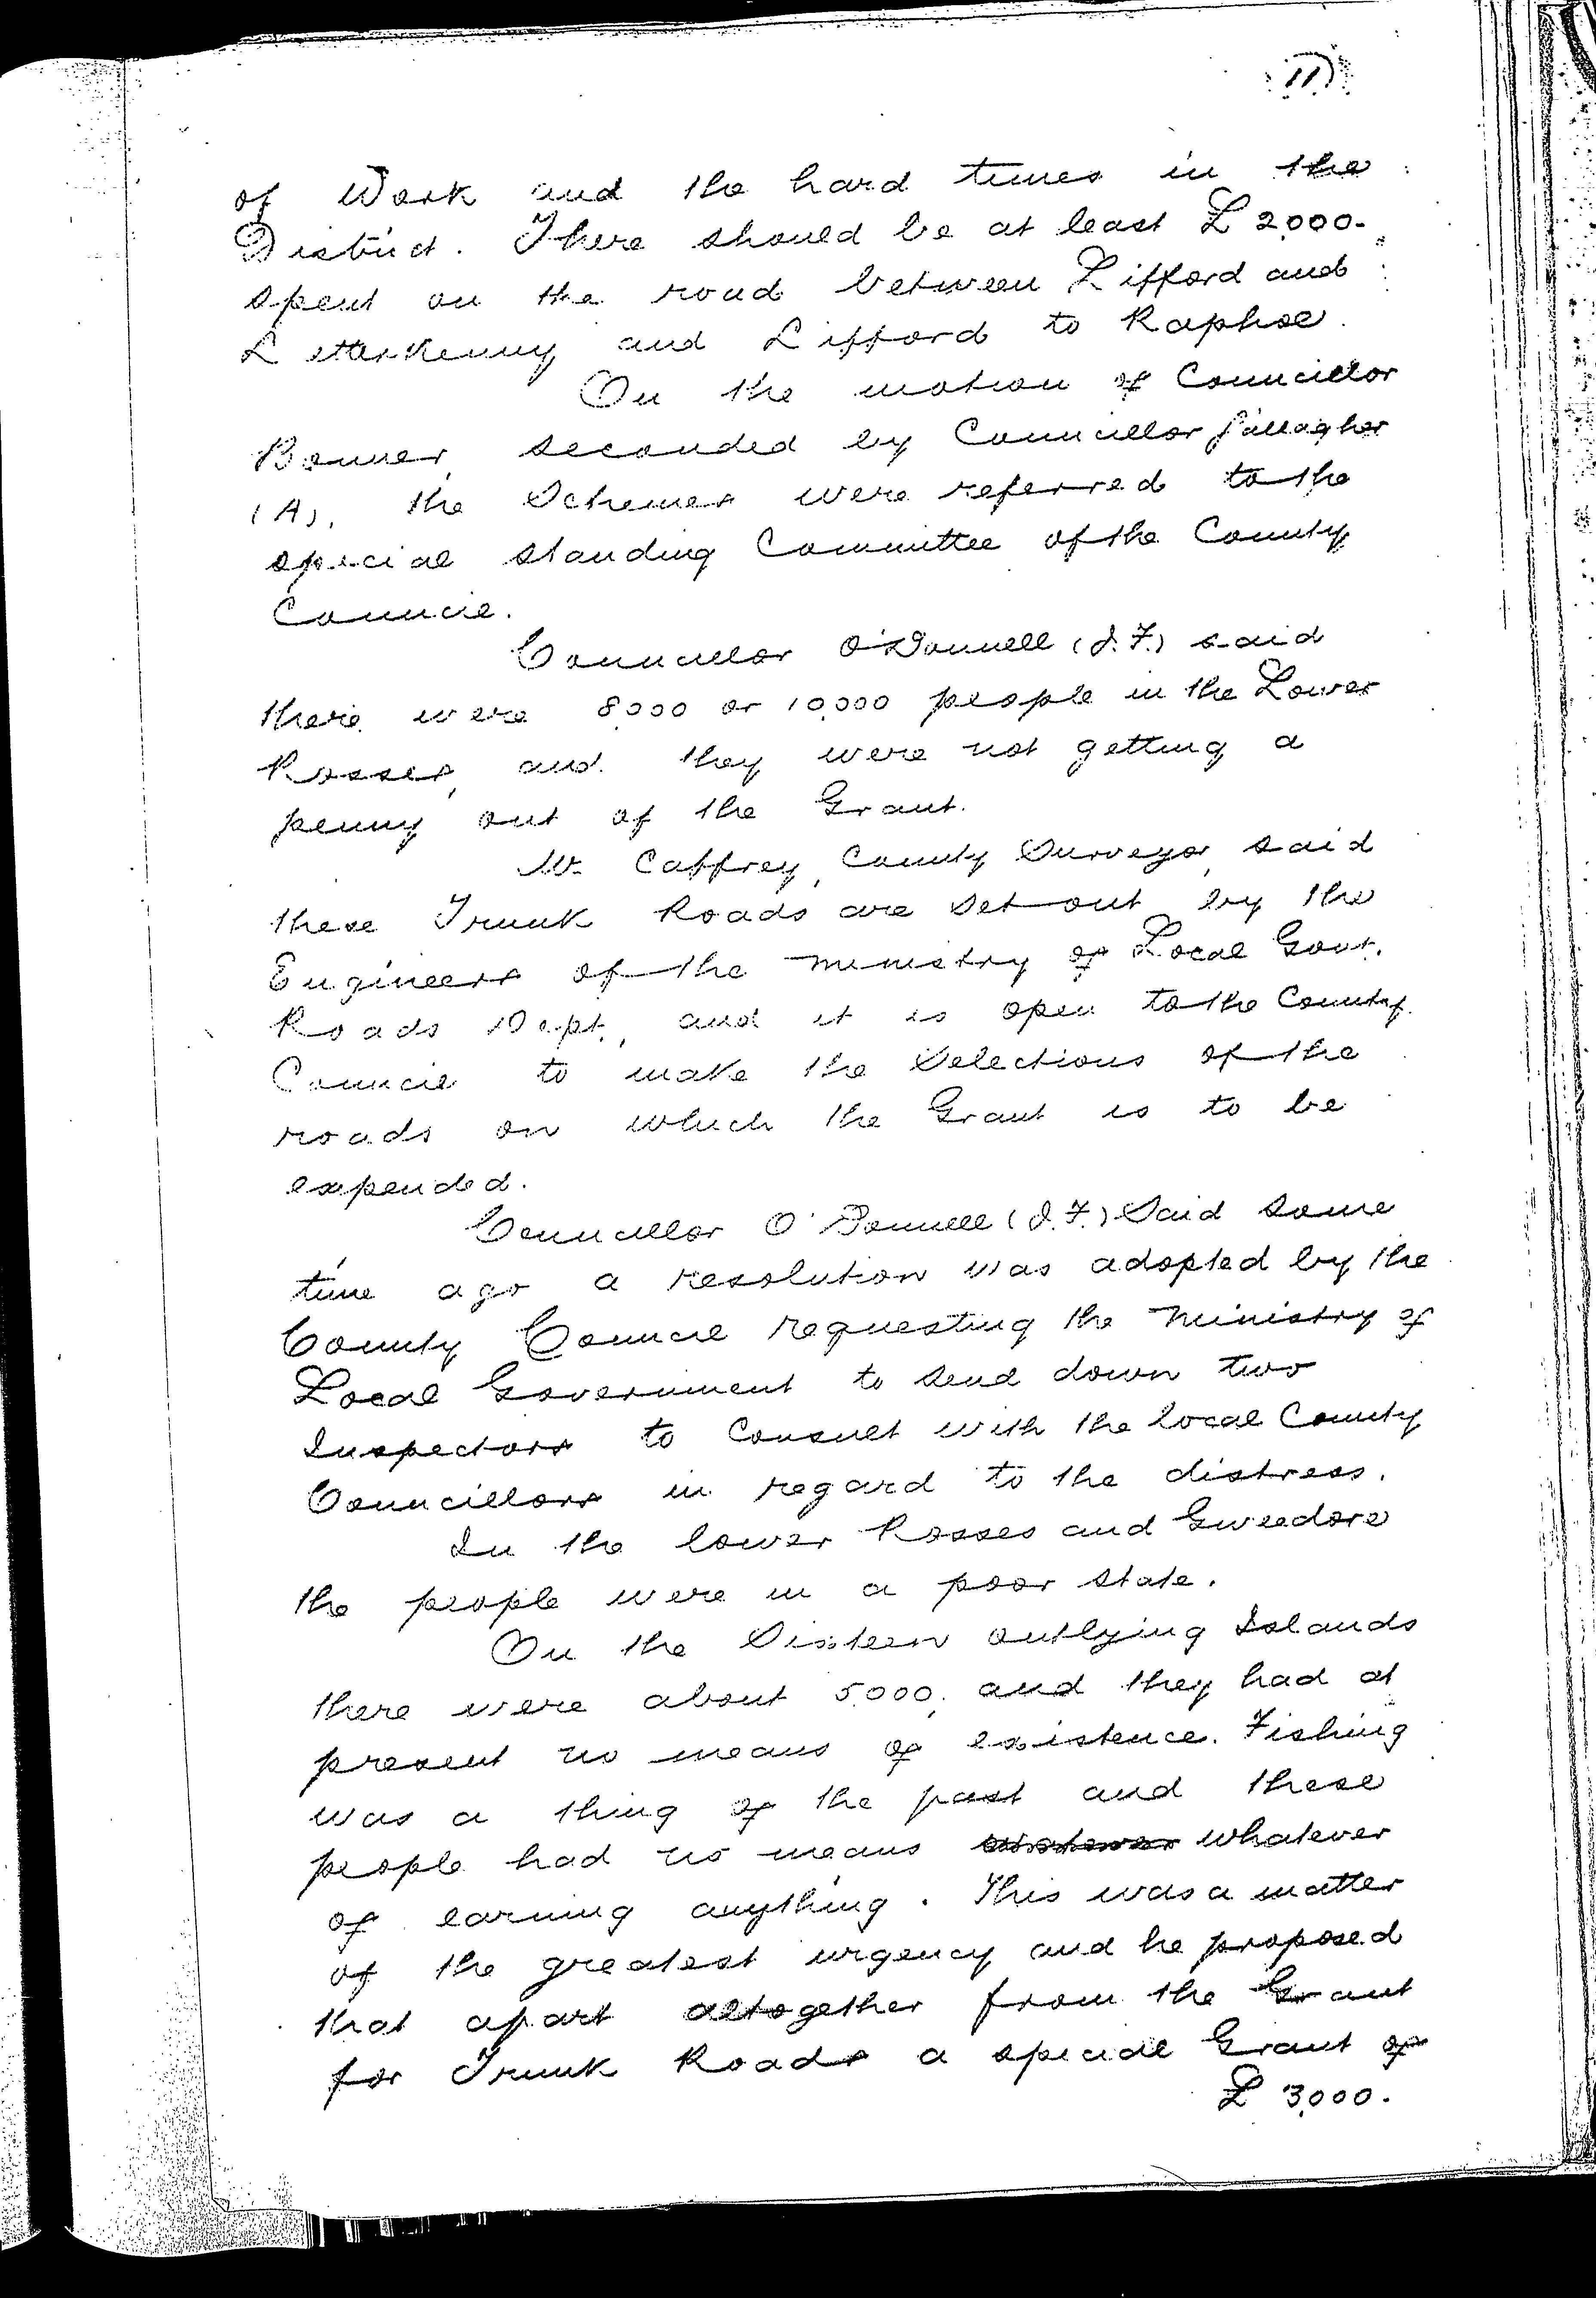 11)
of Work and the hard times in the
District. There should be at least £2,000.
spent on the road between Lifford and
Letterkenny and Lifford to Raphoe.
On the motion of Councillor
Bonner, seconded by Councillor Gallagher
(A), the Schemes were referred to the
special standing Committee of the County
Council.
Councillor O'Donnell (J.F.) said
there were 8,000 or 10,000 people in the Lower
Rosses, and they were not getting a
penny out of the Grant.
Mr. Caffrey, County Surveyor, said
these Trunk Roads are set out by the
Engineers of the Ministry of Local Govt.
Roads Dept., and it is open to the County
Council to make the Selections of the
roads on which the Grant is to be
expended.
Councillor O'Donnell (J.F.) Said some
time ago a resolution was adopted by the
County Council requesting the Ministry of
Local Government to send down two
Inspectors to Consult with the local County
Councillors in regard to the distress.
In the lower Rosses and Gweedore
the people were in a poor state.
On the Sixteen outlying Islands
there were about 5,000, and they had at
present no means of existence. Fishing
was a thing of the past and these
people had no means whatever
of earning anything. This was a matter
of the greatest urgency and he proposed
that apart altogether from the Grant
for Trunk Roads a special Grant of
£3,000.